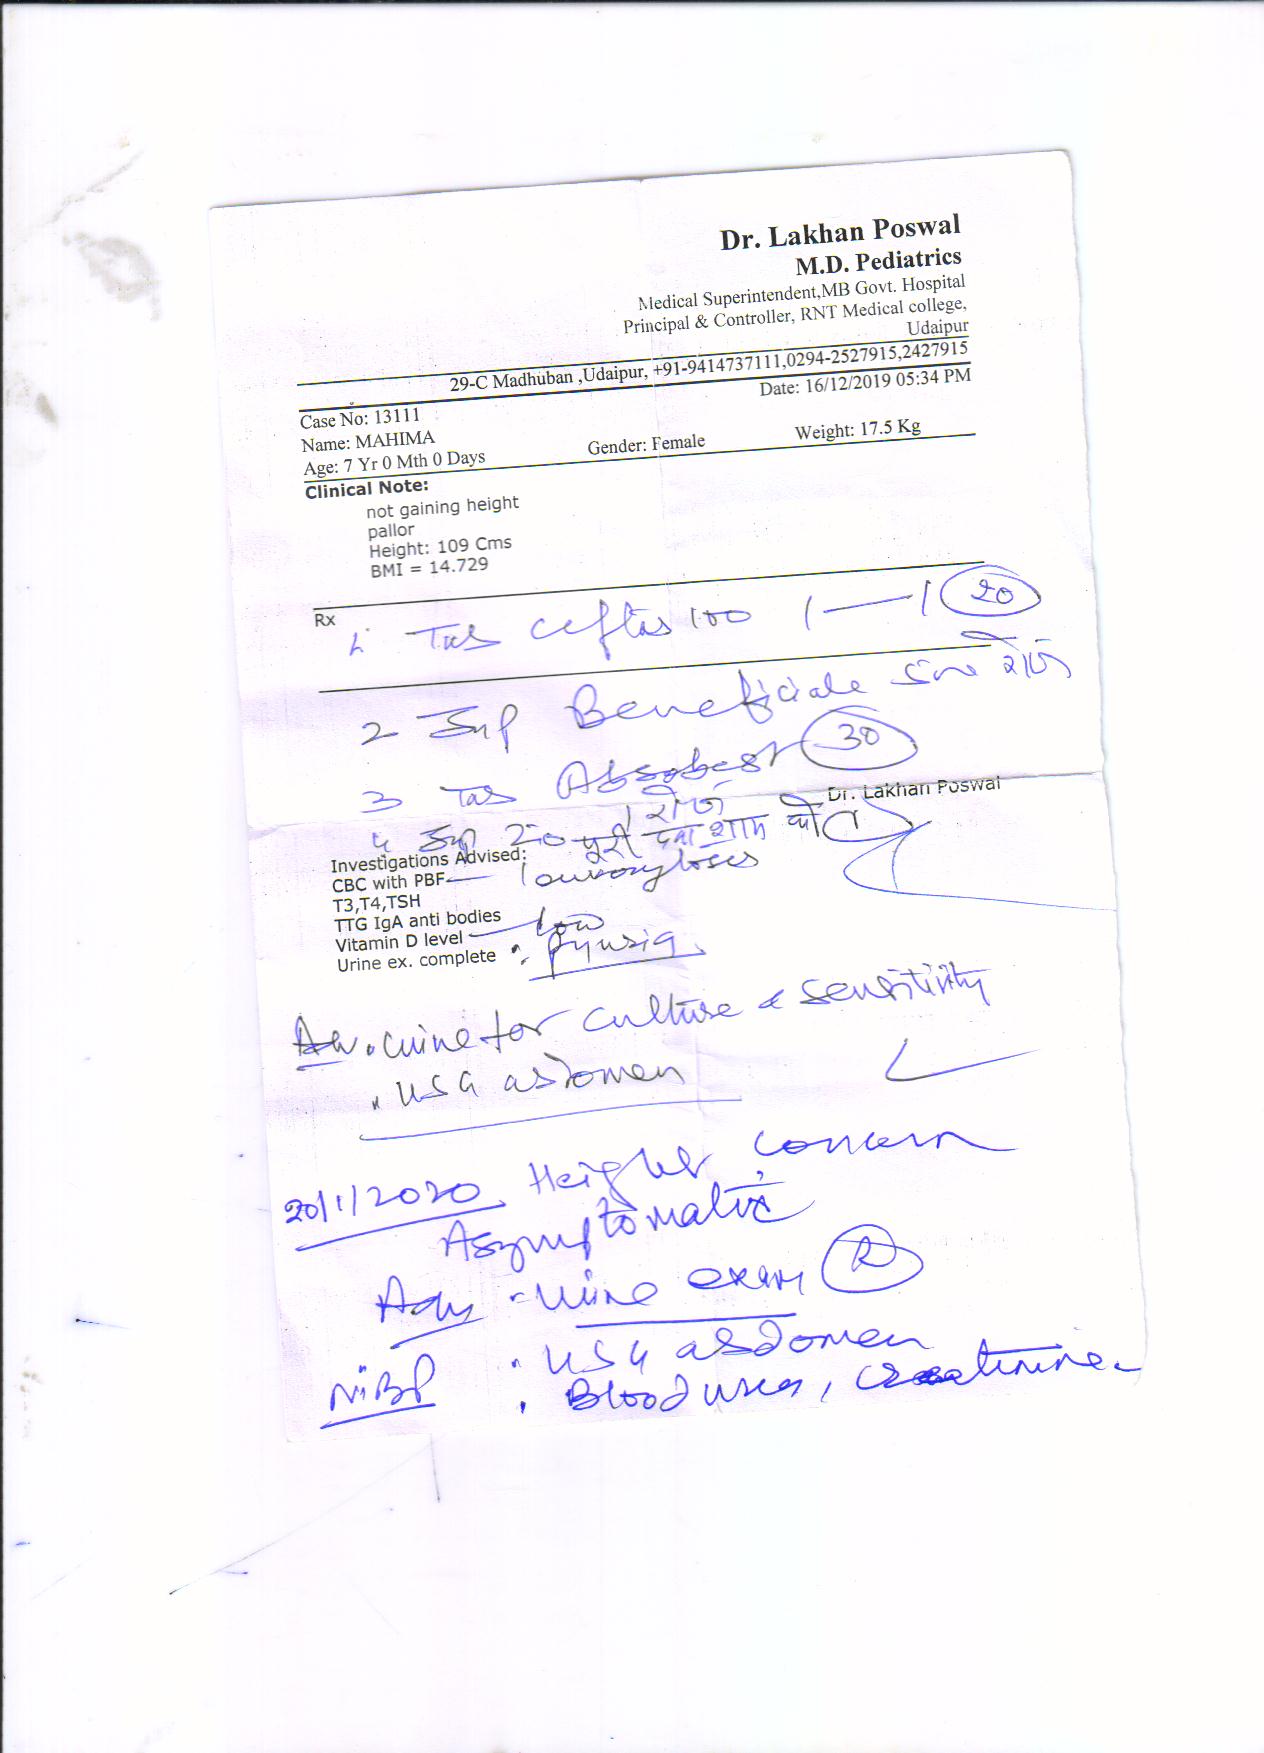 Dr. Lakhan Poswal
M.D. Pediatrics
Medical Superintendent,MB Govt. Hospital
Principal & Controller, RNT Medical college,
Udaipur
29-C Madhuban ,Udaipur, +91-9414737111,0294-2527915,2427915
Date: 16/12/2019 05:34 PM
Case No: 13111
Name: MAHIMA
Age: 7 Yr 0 Mth 0 Days Gender: Female Weight: 17.5 Kg
Clinical Note:
not gaining height
pallor
Height: 109 Cms
BMI = 14.729
Rx
1. Tab 100 1 — 1 20
2 Syp Beneficiale रोज
3 Tab Absobest 30
1 रोज
4 Syp शाम को
Dr. Lakhan Poswal
Investigations Advised:
CBC with PBF
T3,T4,TSH
TTG IgA anti bodies
Vitamin D level — low
Urine ex. complete
Adv. urine for culture & sensitivity
. USG abdomen
20/1/2020 Height concern
Asymptomatic
Adv - urine exam R
NiBP . USG abdomen
. Blood urea, creatinine